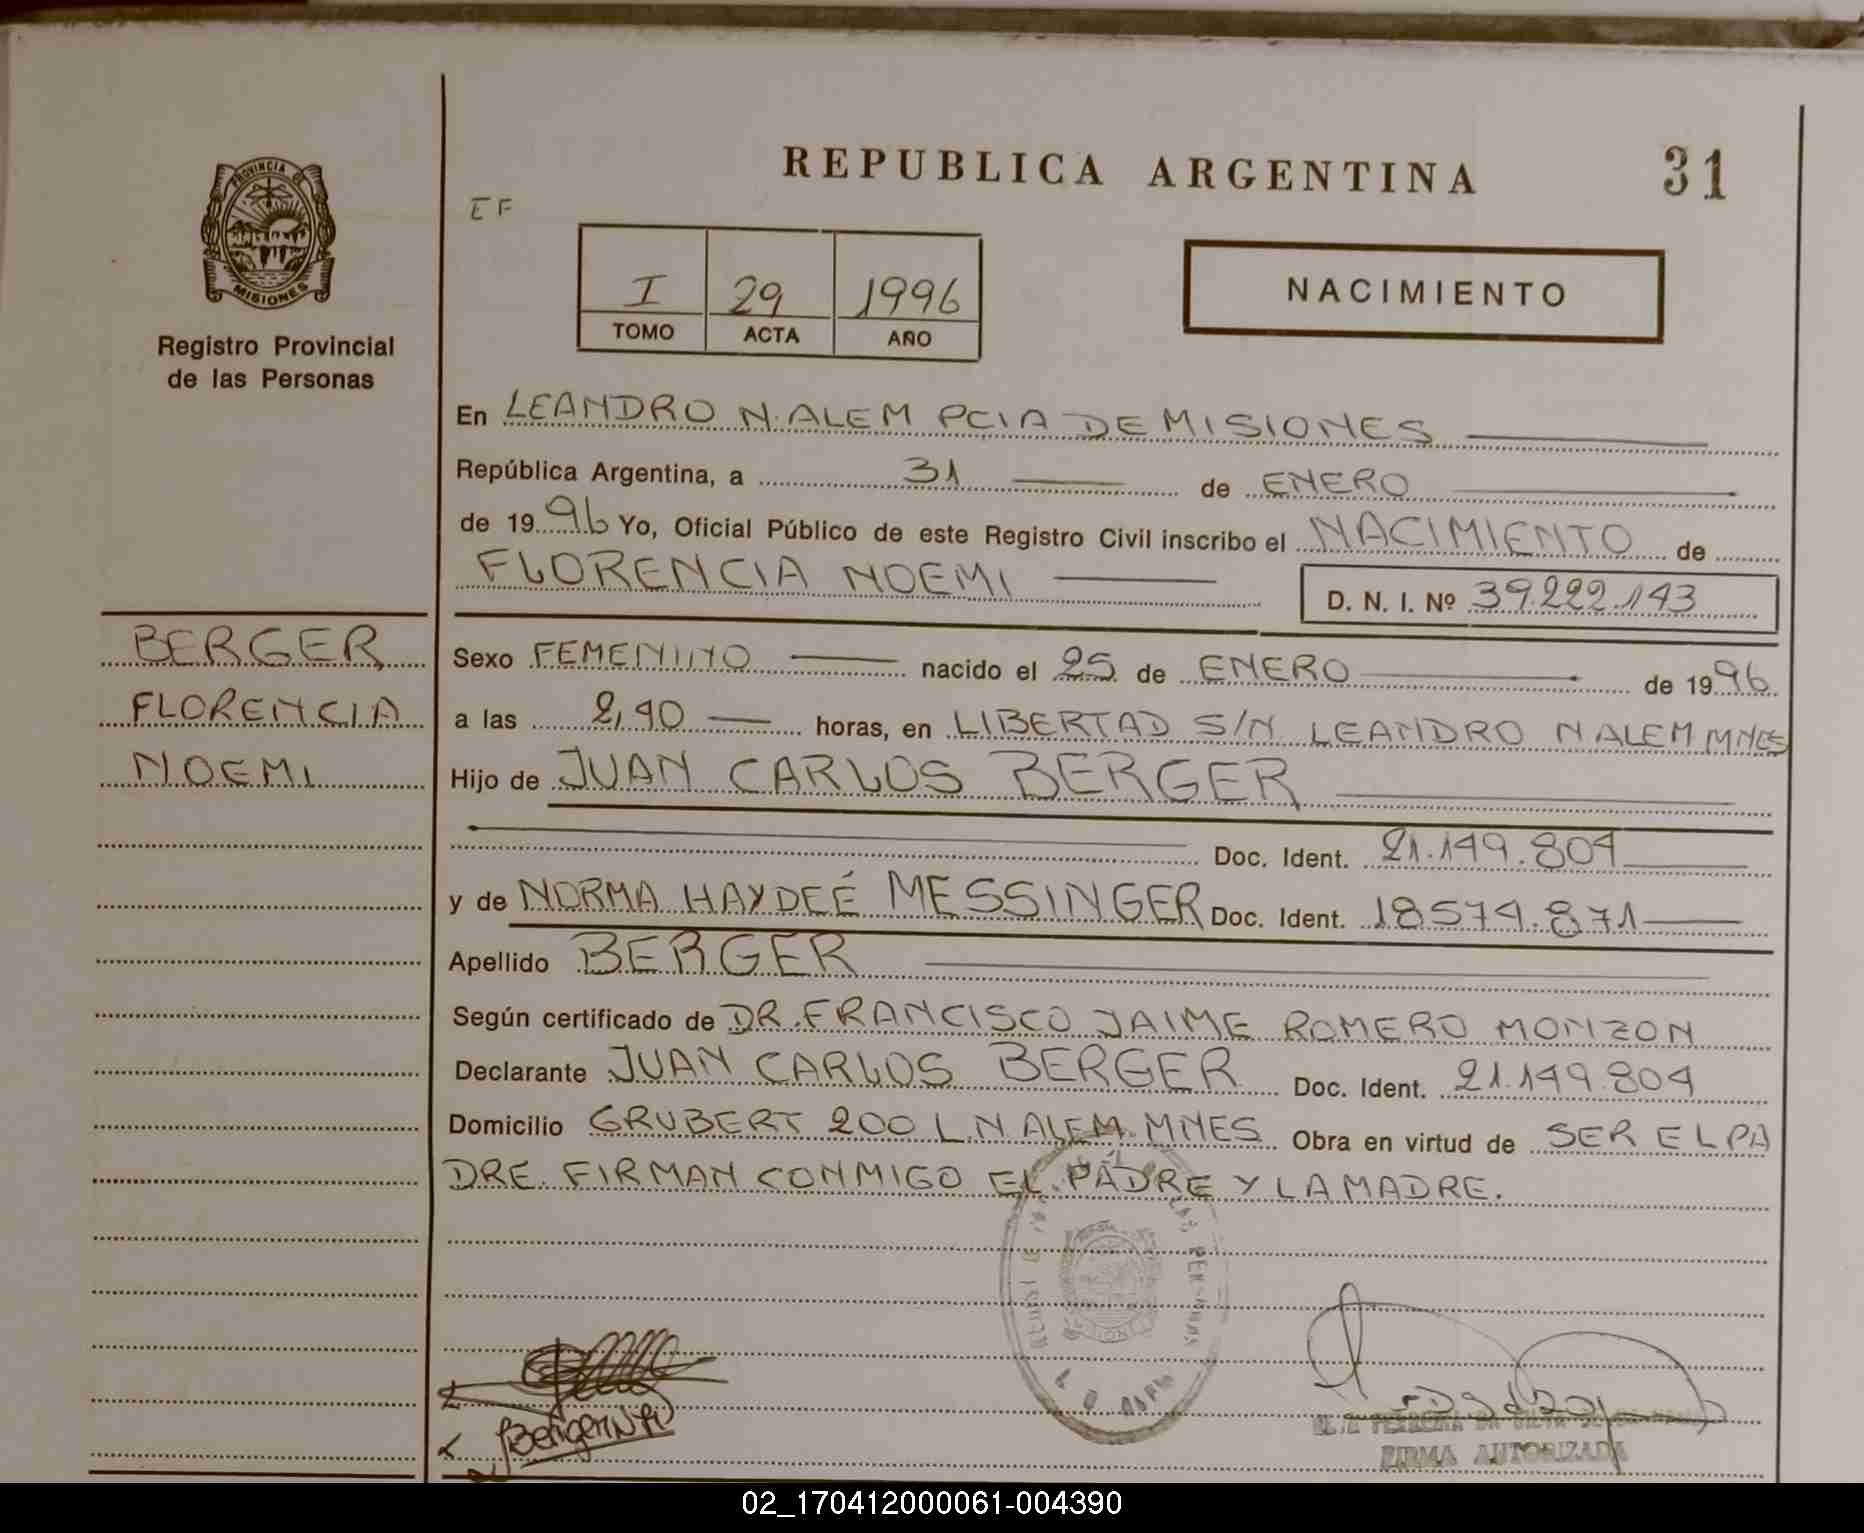 REPUBLICA ARGENTINA
31
PROVINCIA DE
MISIONES
Registro Provincial
de las Personas
EF
I 29 1996
TOMO ACTA AÑO
NACIMIENTO
En LEANDRO N. ALEM PCIA DE MISIONES
República Argentina, a 31 de ENERO
de 1996 Yo, Oficial Público de este Registro Civil inscribo el NACIMIENTO de
FLORENCIA NOEMI
D. N. I. Nº 39.222.143
BERGER
FLORENCIA
NOEMI
Sexo FEMENINO nacido el 25 de ENERO de 1996.
a las 2,40 horas, en LIBERTAD S/N LEANDRO N ALEM MNES
Hijo de JUAN CARLOS BERGER
Doc. Ident. 21.149.804
y de NORMA HAYDEÉ MESSINGER Doc. Ident. 18574.871
Apellido BERGER
Según certificado de DR. FRANCISCO JAIME ROMERO MONZON
Declarante JUAN CARLOS BERGER Doc. Ident. 21.149.804
Domicilio GRUBERT 200 L.N ALEM. MNES Obra en virtud de SER EL PA
DRE. FIRMAN CONMIGO EL PADRE Y LA MADRE.
FIRMA AUTORIZADA
02_170412000061-004390